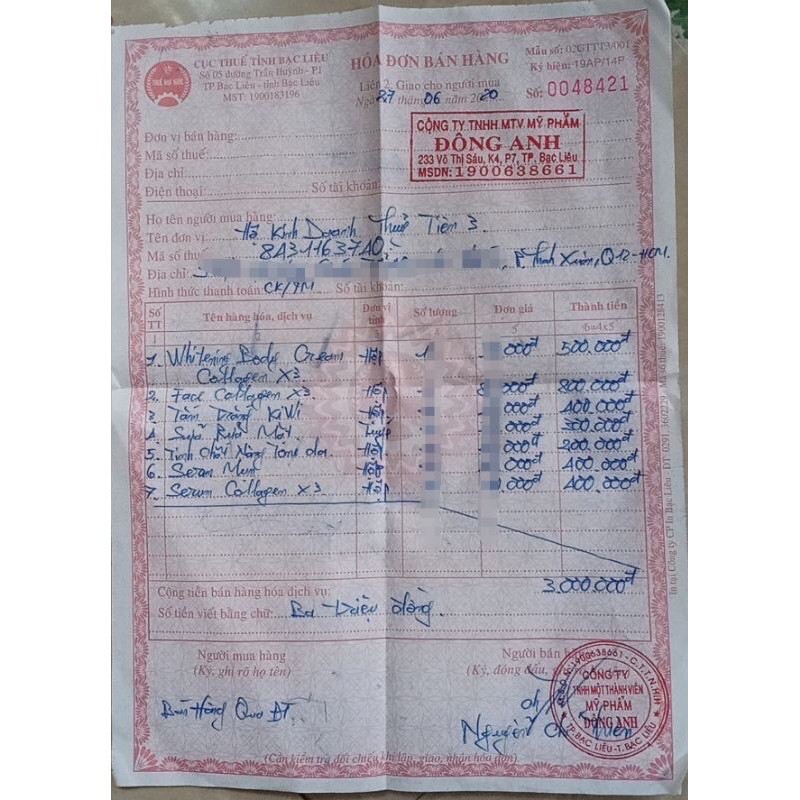 CỤC THUẾ TỈNH BẠC LIÊU
Số 05 đường Trần Huỳnh - P.1
TP Bạc Liêu - tỉnh Bạc Liêu
MST: 1900183196
THUẾ NHÀ NƯỚC
HÓA ĐƠN BÁN HÀNG
Liên 2: Giao cho người mua
Ngày 27 tháng 06 năm 2020
Mẫu số: 02GTTT3/001
Ký hiệu: 19AP/14P
Số: 0048421
Đơn vị bán hàng:
Mã số thuế:
Địa chỉ:
Điện thoại: Số tài khoản:
CÔNG TY TNHH MTV MỸ PHẨM
ĐÔNG ANH
233 Võ Thị Sáu, K4, P7, TP. Bạc Liêu
MSDN: 1900638661
Họ tên người mua hàng:
Tên đơn vị: Hộ Kinh Doanh Thuỷ Tiên 3
Mã số thuế: 8431163740
Địa chỉ: Thạnh Xuân, Q12-HCM.
Hình thức thanh toán: CK/TM Số tài khoản:
Số TT Tên hàng hóa, dịch vụ Đơn vị tính Số lượng Đơn giá Thành tiền
1 4 5 6=4x5
1. Whitening Body Cream Collagen X3 Hộp 1 000đ 500.000đ
2. Face Collagen X3 Hộp 000đ 800.000đ
3 Tắm Trắng KiWi Hộp 000đ 400.000đ
4. Sữa Rửa Mặt Tuýp 000đ 300.000đ
5. Tinh Chất Nâng Tone da Hộp 000đ 200.000đ
6. Serum Mụn Hộp 000đ 400.000đ
7. Serum Collagen X3 Hộp 000đ 400.000đ
Cộng tiền bán hàng hóa dịch vụ: 3.000.000đ
Số tiền viết bằng chữ: Ba Triệu đồng.
Người mua hàng
(Ký, ghi rõ họ tên)
Bán Hàng Qua ĐT
Người bán hàng
(Ký, đóng dấu,
Nguyễn
M.S.D.N: 1900638661 - C.T.T.N.H.H
CÔNG TY
TNHH MỘT THÀNH VIÊN
MỸ PHẨM
ĐÔNG ANH
TP. BẠC LIÊU - T. BẠC LIÊU
(Cần kiểm tra đối chiếu khi lập, giao, nhận hóa đơn)
In tại Công ty CP In Bạc Liêu - ĐT: 0291.3602229 - Mã số thuế: 1900128413